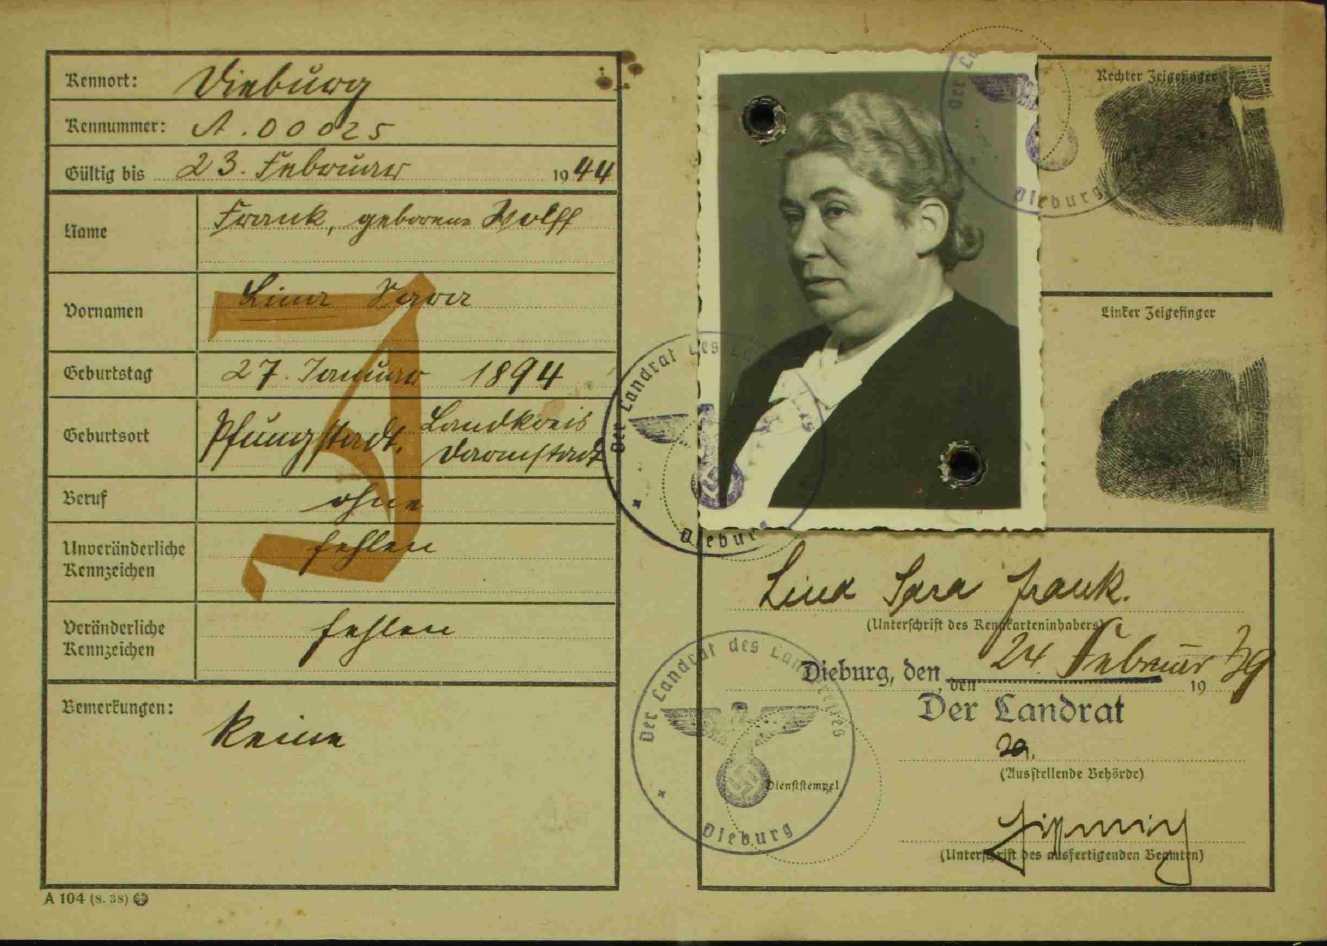 Kennort: Dieburg
Kennummer: A.00025
Gültig bis 23. Februar 1944
Name Frank, geborene Wolff
Vornamen Lina Sara
J
Geburtstag 27. Januar 1894
Geburtsort Pfungstadt, Landkreis
Darmstadt
Beruf ohne
Unveränderliche
Kennzeichen fehlen
Veränderliche
Kennzeichen fehlen
Bemerkungen: Keine
A 104 (8. 38)
Rechter Zeigefinger
Linker Zeigefinger
Der Landrat des
Dieburg
Lina Sara Frank.
(Unterschrift des Kennkarteninhabers)
Dieburg, den 24. Februar 1939
den
Der Landrat
(Ausstellende Behörde)
Der Landrat des Landkreises
Dieburg
Dienststempel
(Unterschrift des ausfertigenden Beamten)